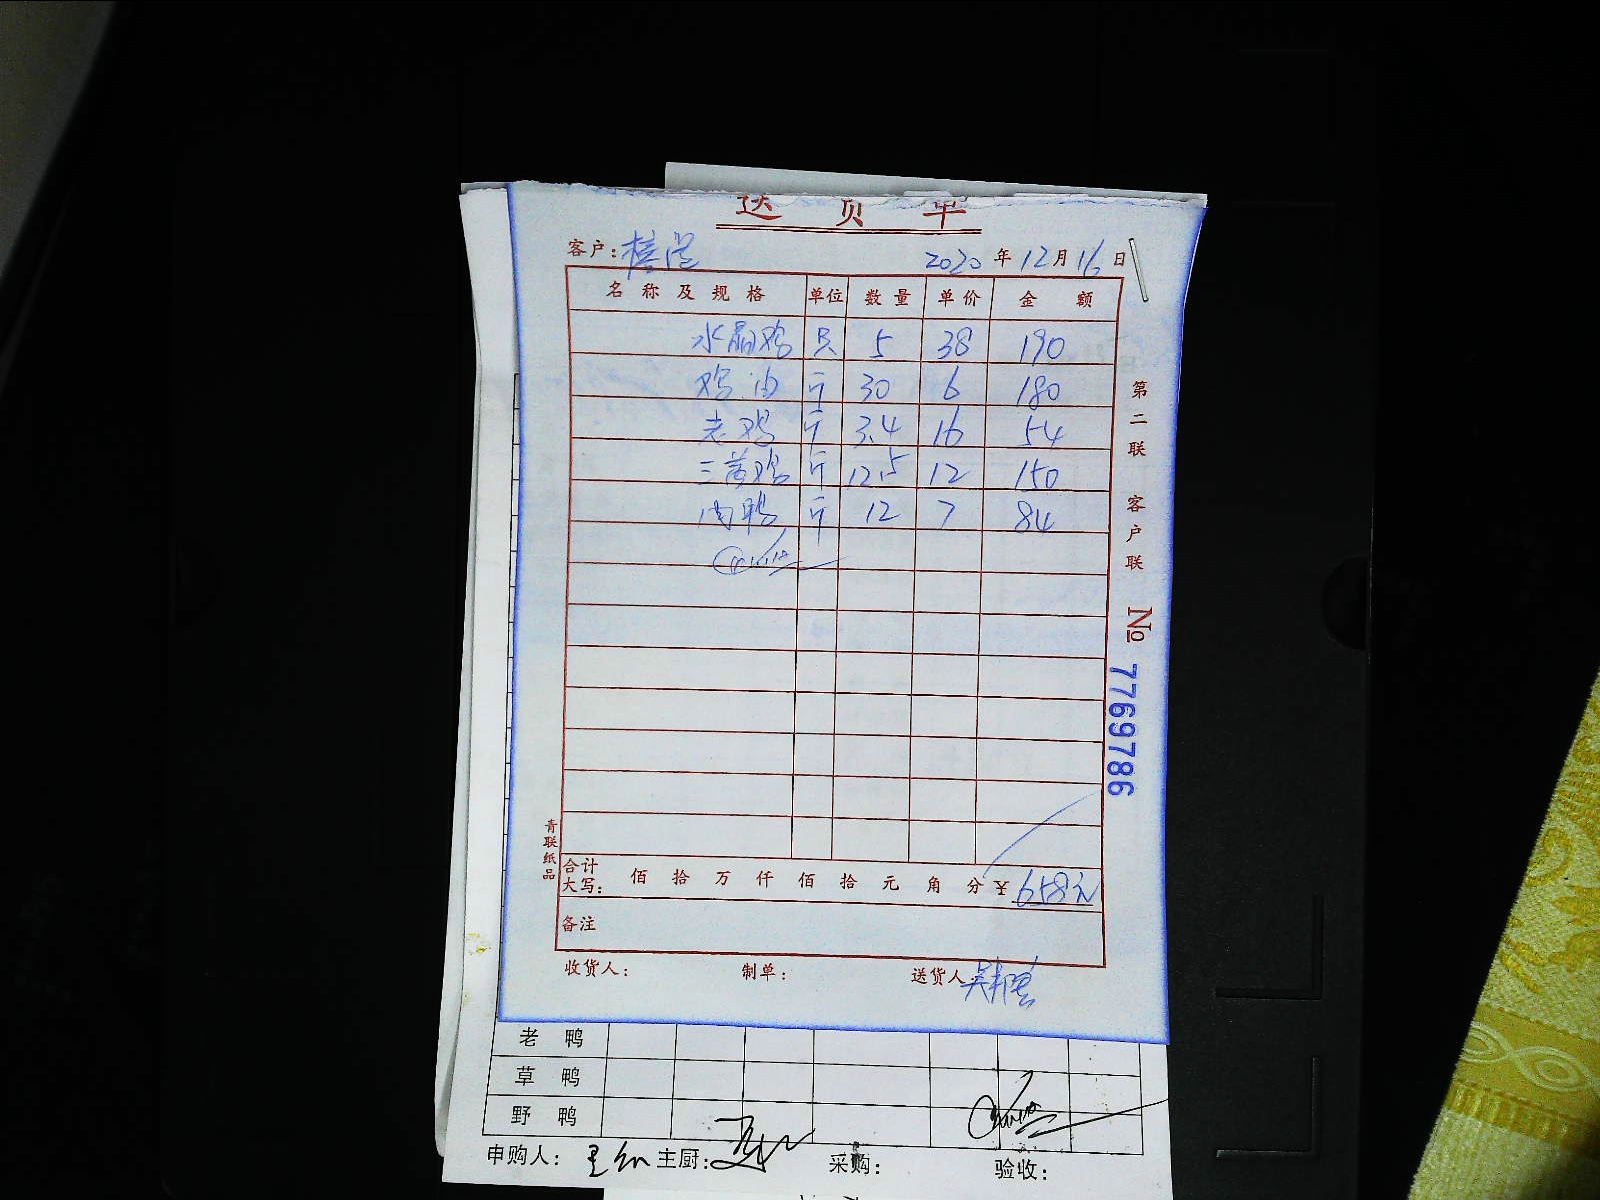 送货单
客户: 2020年12月16日
名称及规格 单位 数量 单价 金额
水晶鸡 只 5 38 190
鸡油 斤 30 6 180
老鸡 斤 3.4 16 54
三黄鸡 斤 12.5 12 150
肉鸭 斤 12 7 84
合计
大写: 佰 拾 万 仟 佰 拾 元 角 分 ¥658元
备注
收货人: 制单: 送货人:
第二联 客户联 № 7769786
青联纸品
老鸭
草鸭
野鸭
申购人: 主厨: 采购: 验收: